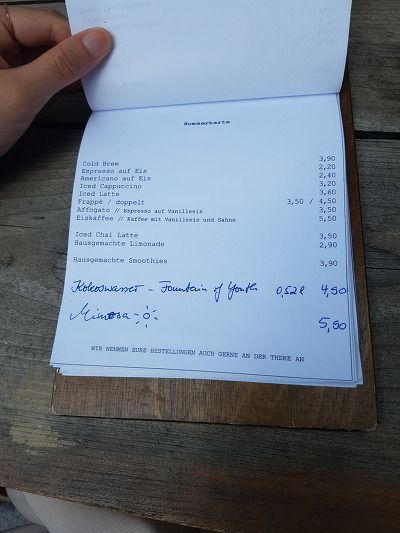 Sommerkarte
Cold Brew 3,90
Espresso auf Eis 2,20
Americano auf Eis 2,40
Iced Cappuccino 3,20
Iced Latte 3,60
Frappé / doppelt 3,50 / 4,50
Affogato // Espresso auf Vanilleeis 3,50
Eiskaffee // Kaffee mit Vanilleeis und Sahne 5,50
Iced Chai Latte 3,50
Hausgemachte Limonade 2,90
Hausgemachte Smoothies 3,90
Kokoswasser - Fountain of Youth 0,52l 4,90
Mimosa 5,90
WIR NEHMEN EURE BESTELLUNGEN AUCH GERNE AN DER THEKE AN